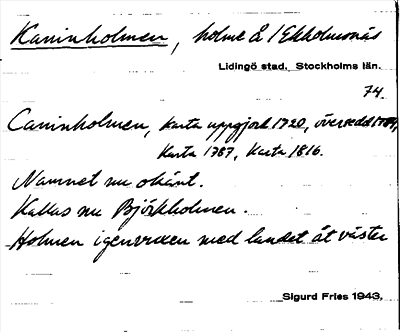 Kaninholmen, holme å Ekholmsnäs
Lidingö stad. Stockholms län.
74.
Caninholmen, Karta uppgjord 1720, översedd
Karta 1787, Karta 1816.
Namnet nu okänt.
Kallas nu Björkholmen.
Holmen igenvuxen med landet åt väster
Sigurd Fries 1943.